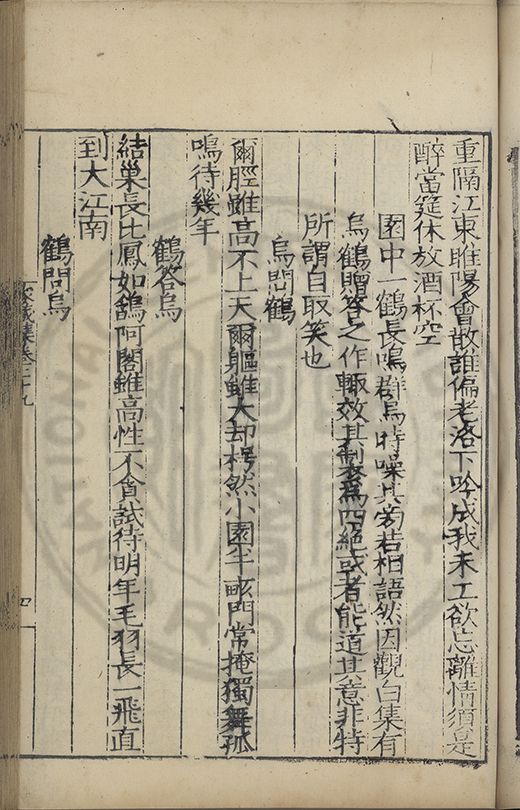 重隔江東睢陽會散誰偏老洛下吟成我未工欲忘離情須是
醉當筵休放酒杯空
園中一鶴長鳴群烏時噪其旁若相語然因觀白集有
烏鶴贈答之作輒效其制變爲四絕或者能道其意非特
所謂自取笑也
烏問鶴
爾脛雖高不上天爾軀雖大却枵然小園半畝門常掩獨舞孤
鳴待幾年
鶴答烏
結巢長比鳳如鶴阿閣雖高性不貪試待明年毛羽長一飛直
到大江南
鶴問烏
家藏集卷二十九
四